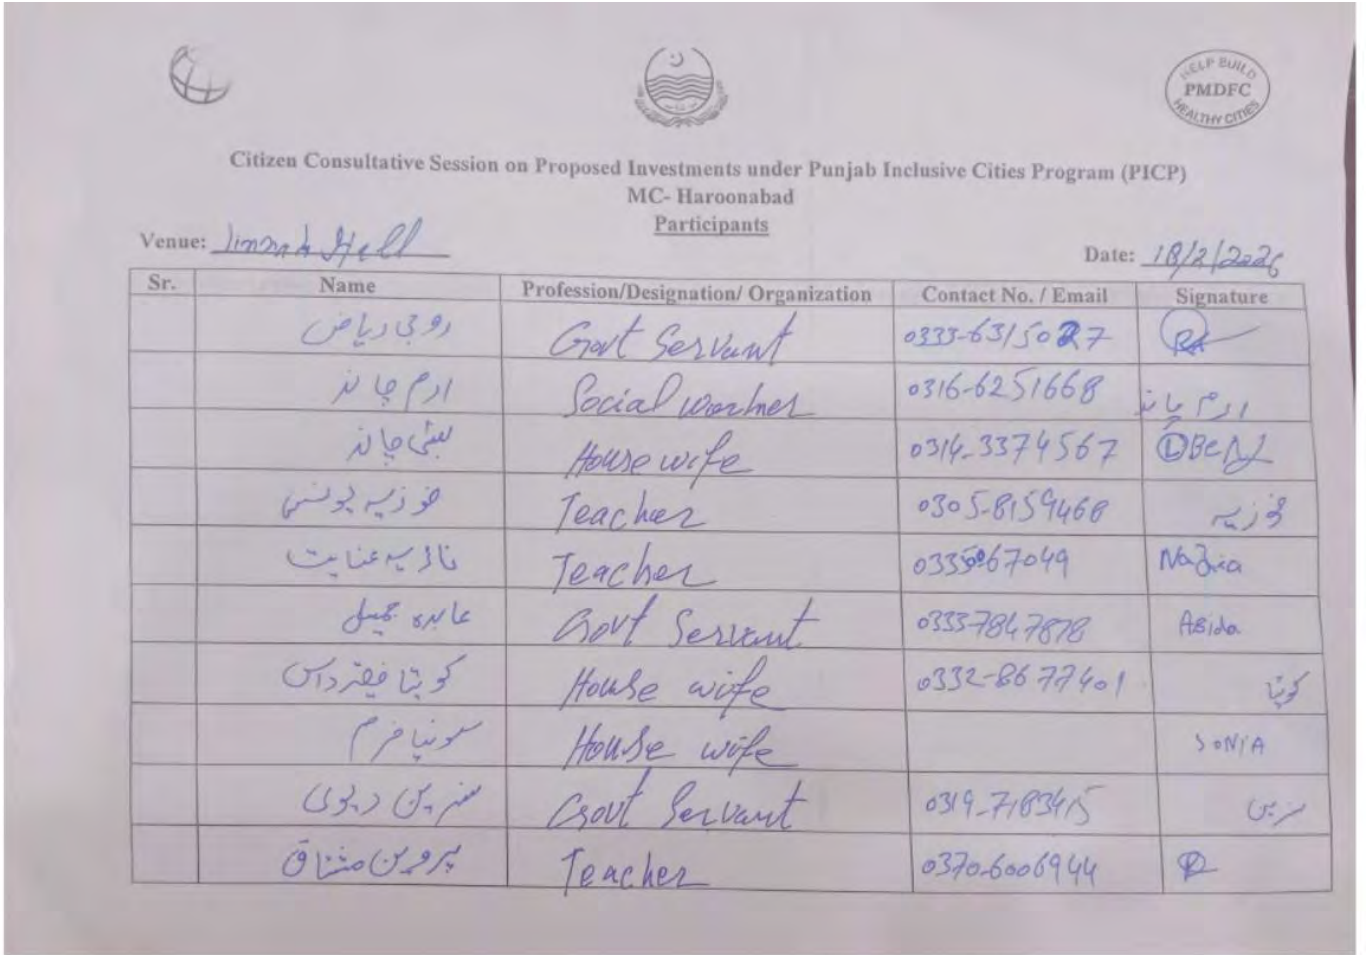 HELP BUILD
PMDFC
HEALTHY CITIES
Citizen Consultative Session on Proposed Investments under Punjab Inclusive Cities Program (PICP)
MC- Haroonabad
Participants
Venue: Jinnah Hall
Date: 18/2/2026
Sr. Name Profession/Designation/ Organization Contact No. / Email Signature
روحی ریاض Govt Servant 0333-6315027
ارم چاند Social worker 0316-6251668 ارم چاند
چاند House wife 0314-3374567
فوزیہ یونس Teacher 0305-8159468 فوزیہ
نادیہ عنایت Teacher Nadia
عابدہ جمیل Govt Servant 03337847878 Abida
کویتا فقیر داس House wife 0332-8677401 کویتا
سونیا خرم House wife SONIA
دیوی Govt Servant 0319-7183415
پروین مشتاق Teacher 0370-6006944